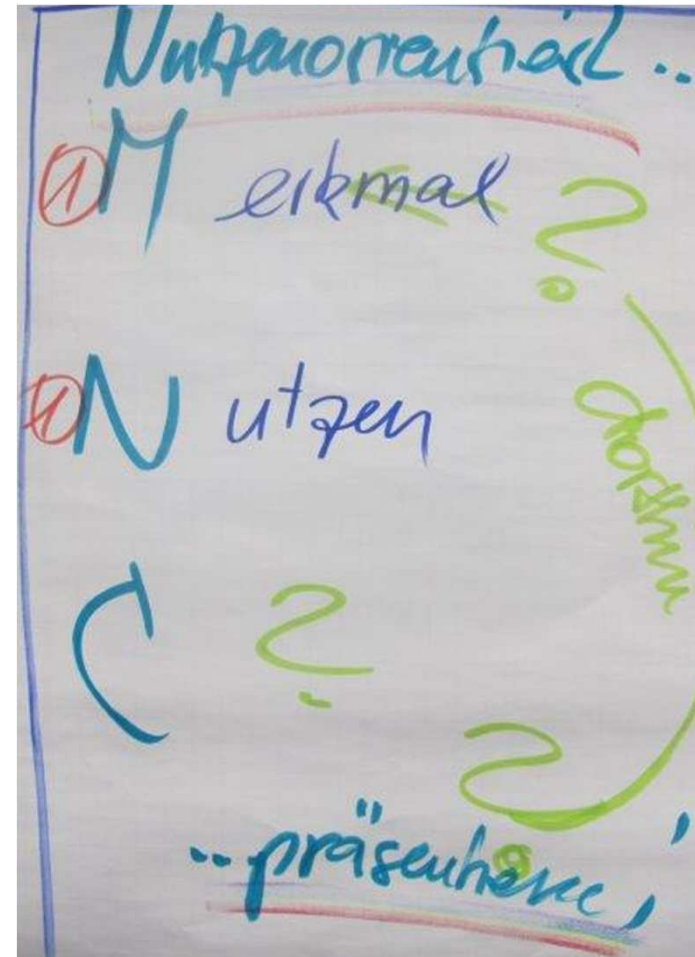 Nutzenorientiert ..
① Merkmal ?
① Nutzen
C ?
?
.. präsentieren!